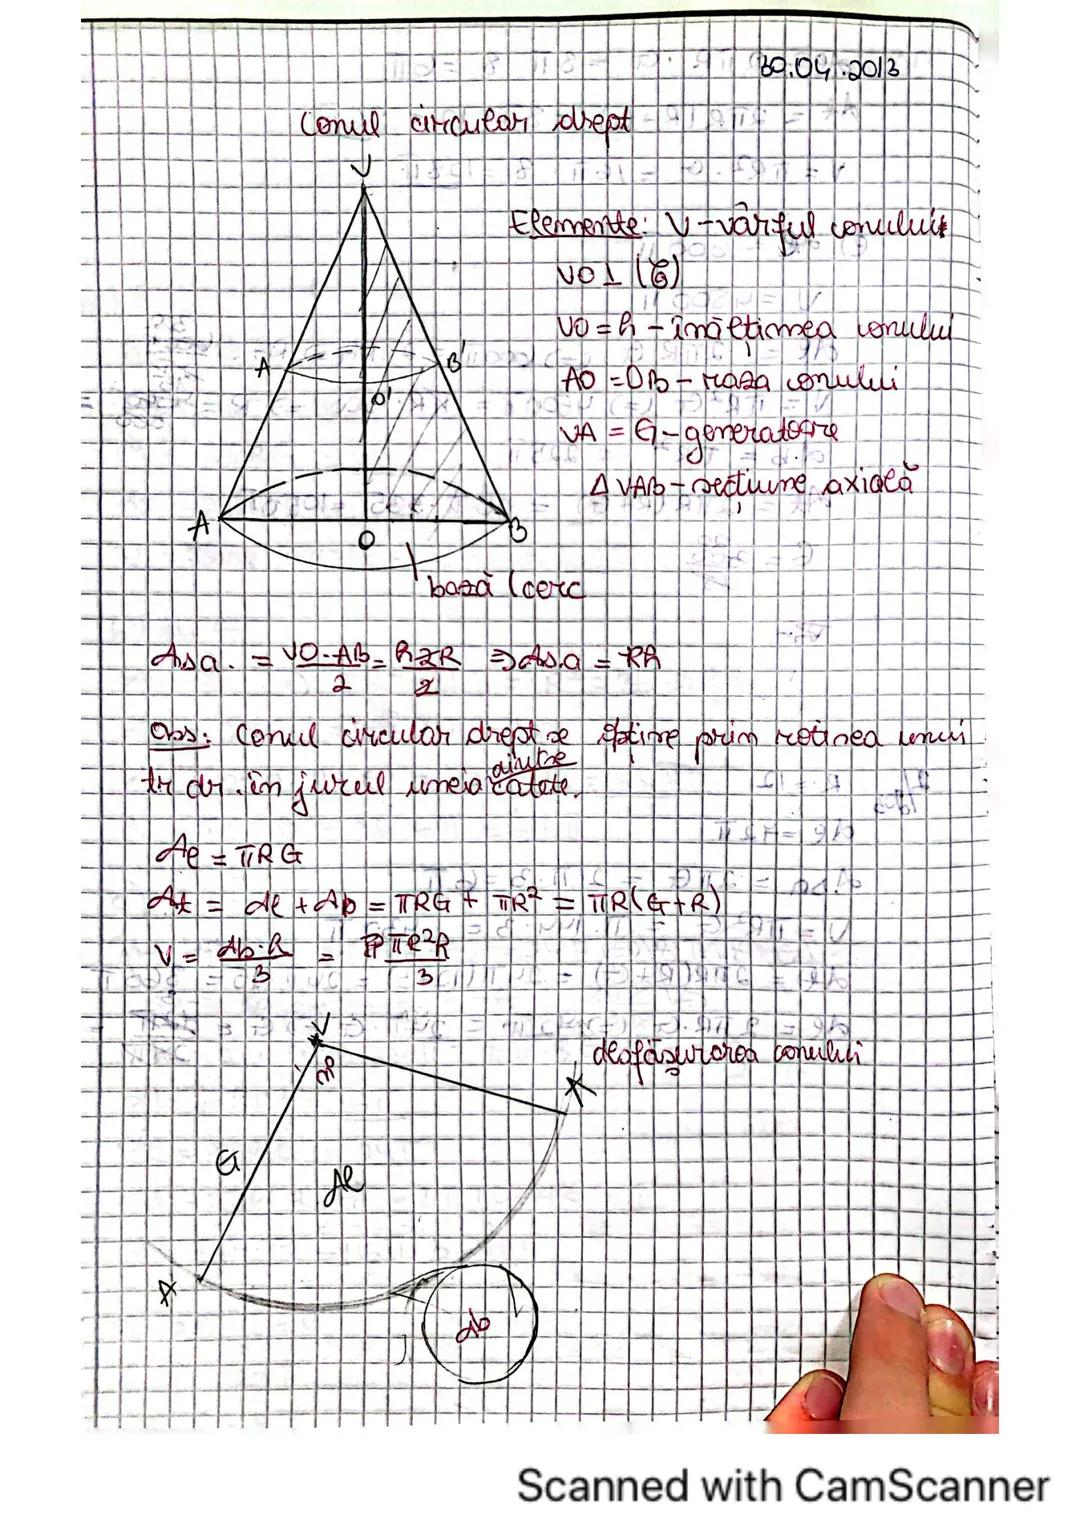 30.04.2013
Conul circular drept
V
Elemente: V-vârful conului
VO⊥(C)
VO=h-înălțimea conului
A' B'
O'
AO=OB-raza conului
VA=G-generatoare
ΔVAB-secțiune axială
A O B
bază (cerc
As.a. = VO·AB/2 = h·2R/2 ⇒ As.a = Rh
Obs: Conul circular drept se obține prim rotirea unui
dintre
tr dr. în jurul uneia catete.
Al = πRG
At = Al + Ab = πRG + πR² = πR(G+R)
V = Ab·h/3 = πR²h/3
V
desfășurarea conului
A
G
Al
A
Ab
Scanned with CamScanner